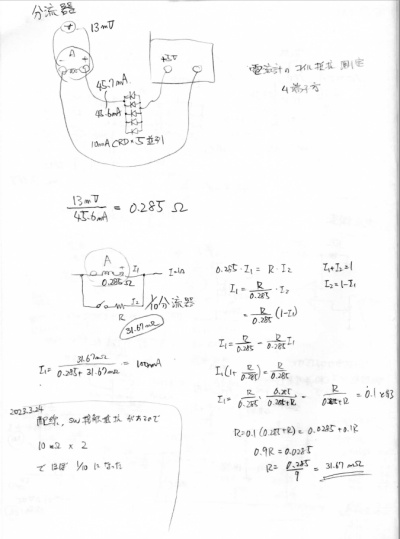 分流器
13mV
A
+3V
45.7mA
45.6mA
10mA CRD × 5 並列
電流計のコイル抵抗 測定
4端子方
13mV / 45.6mA = 0.285 Ω
A
I₁
0.285Ω
I₂
R
1/10分流器
31.67mΩ
I₁ = 31.67mΩ / (0.285 + 31.67mΩ) = 100mA
0.285・I₁ = R・I₂
I₁+I₂=1
I₁ = R/0.285・I₂
I₂=1-I₁
= R/0.285 (1-I₁)
I₁ = R/0.285 - R/0.285 I₁
I₁(1+ R/0.285) = R/0.285
I₁ = R/0.285・0.285/(0.285+R) = R/(0.285+R) = 0.1
R=0.1(0.285+R) = 0.0285+0.1R
0.9R = 0.0285
R= 0.285/9 = 31.67 mΩ
2023.3.24
配線、SW 接触抵抗があるので
10mΩ × 2
でほぼ 1/10 になった